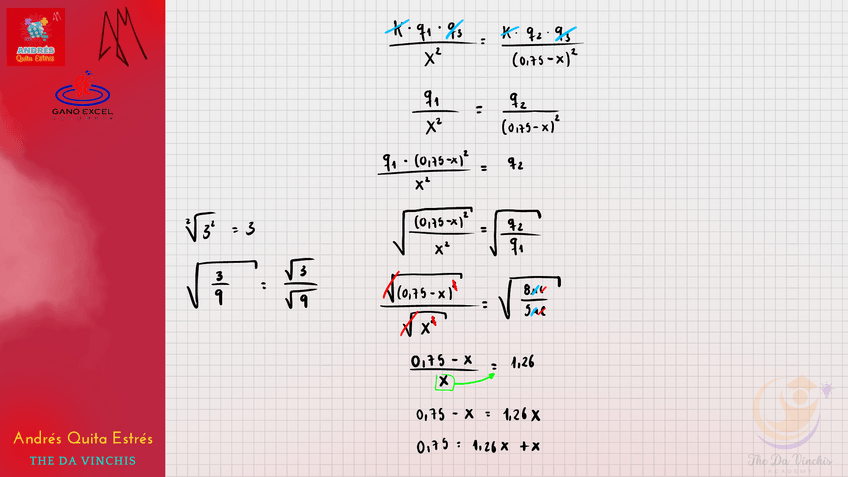 ANDRÉS
Quita Estrés
AM
GANO EXCEL
K · q1 · q3 / x² = K · q2 · q3 / (0,75-x)²
q1 / x² = q2 / (0,75-x)²
q1 · (0,75-x)² / x² = q2
√((0,75-x)² / x²) = √(q2 / q1)
²√3² = 3
√(3/9) = √3 / √9
√(0,75-x)² / √x² = √(8 / 5)
0,75 - x / x = 1,26
0,75 - x = 1,26x
0,75 = 1,26x + x
Andrés Quita Estrés
THE DA VINCHIS
The Da Vinchis
ACADEMY